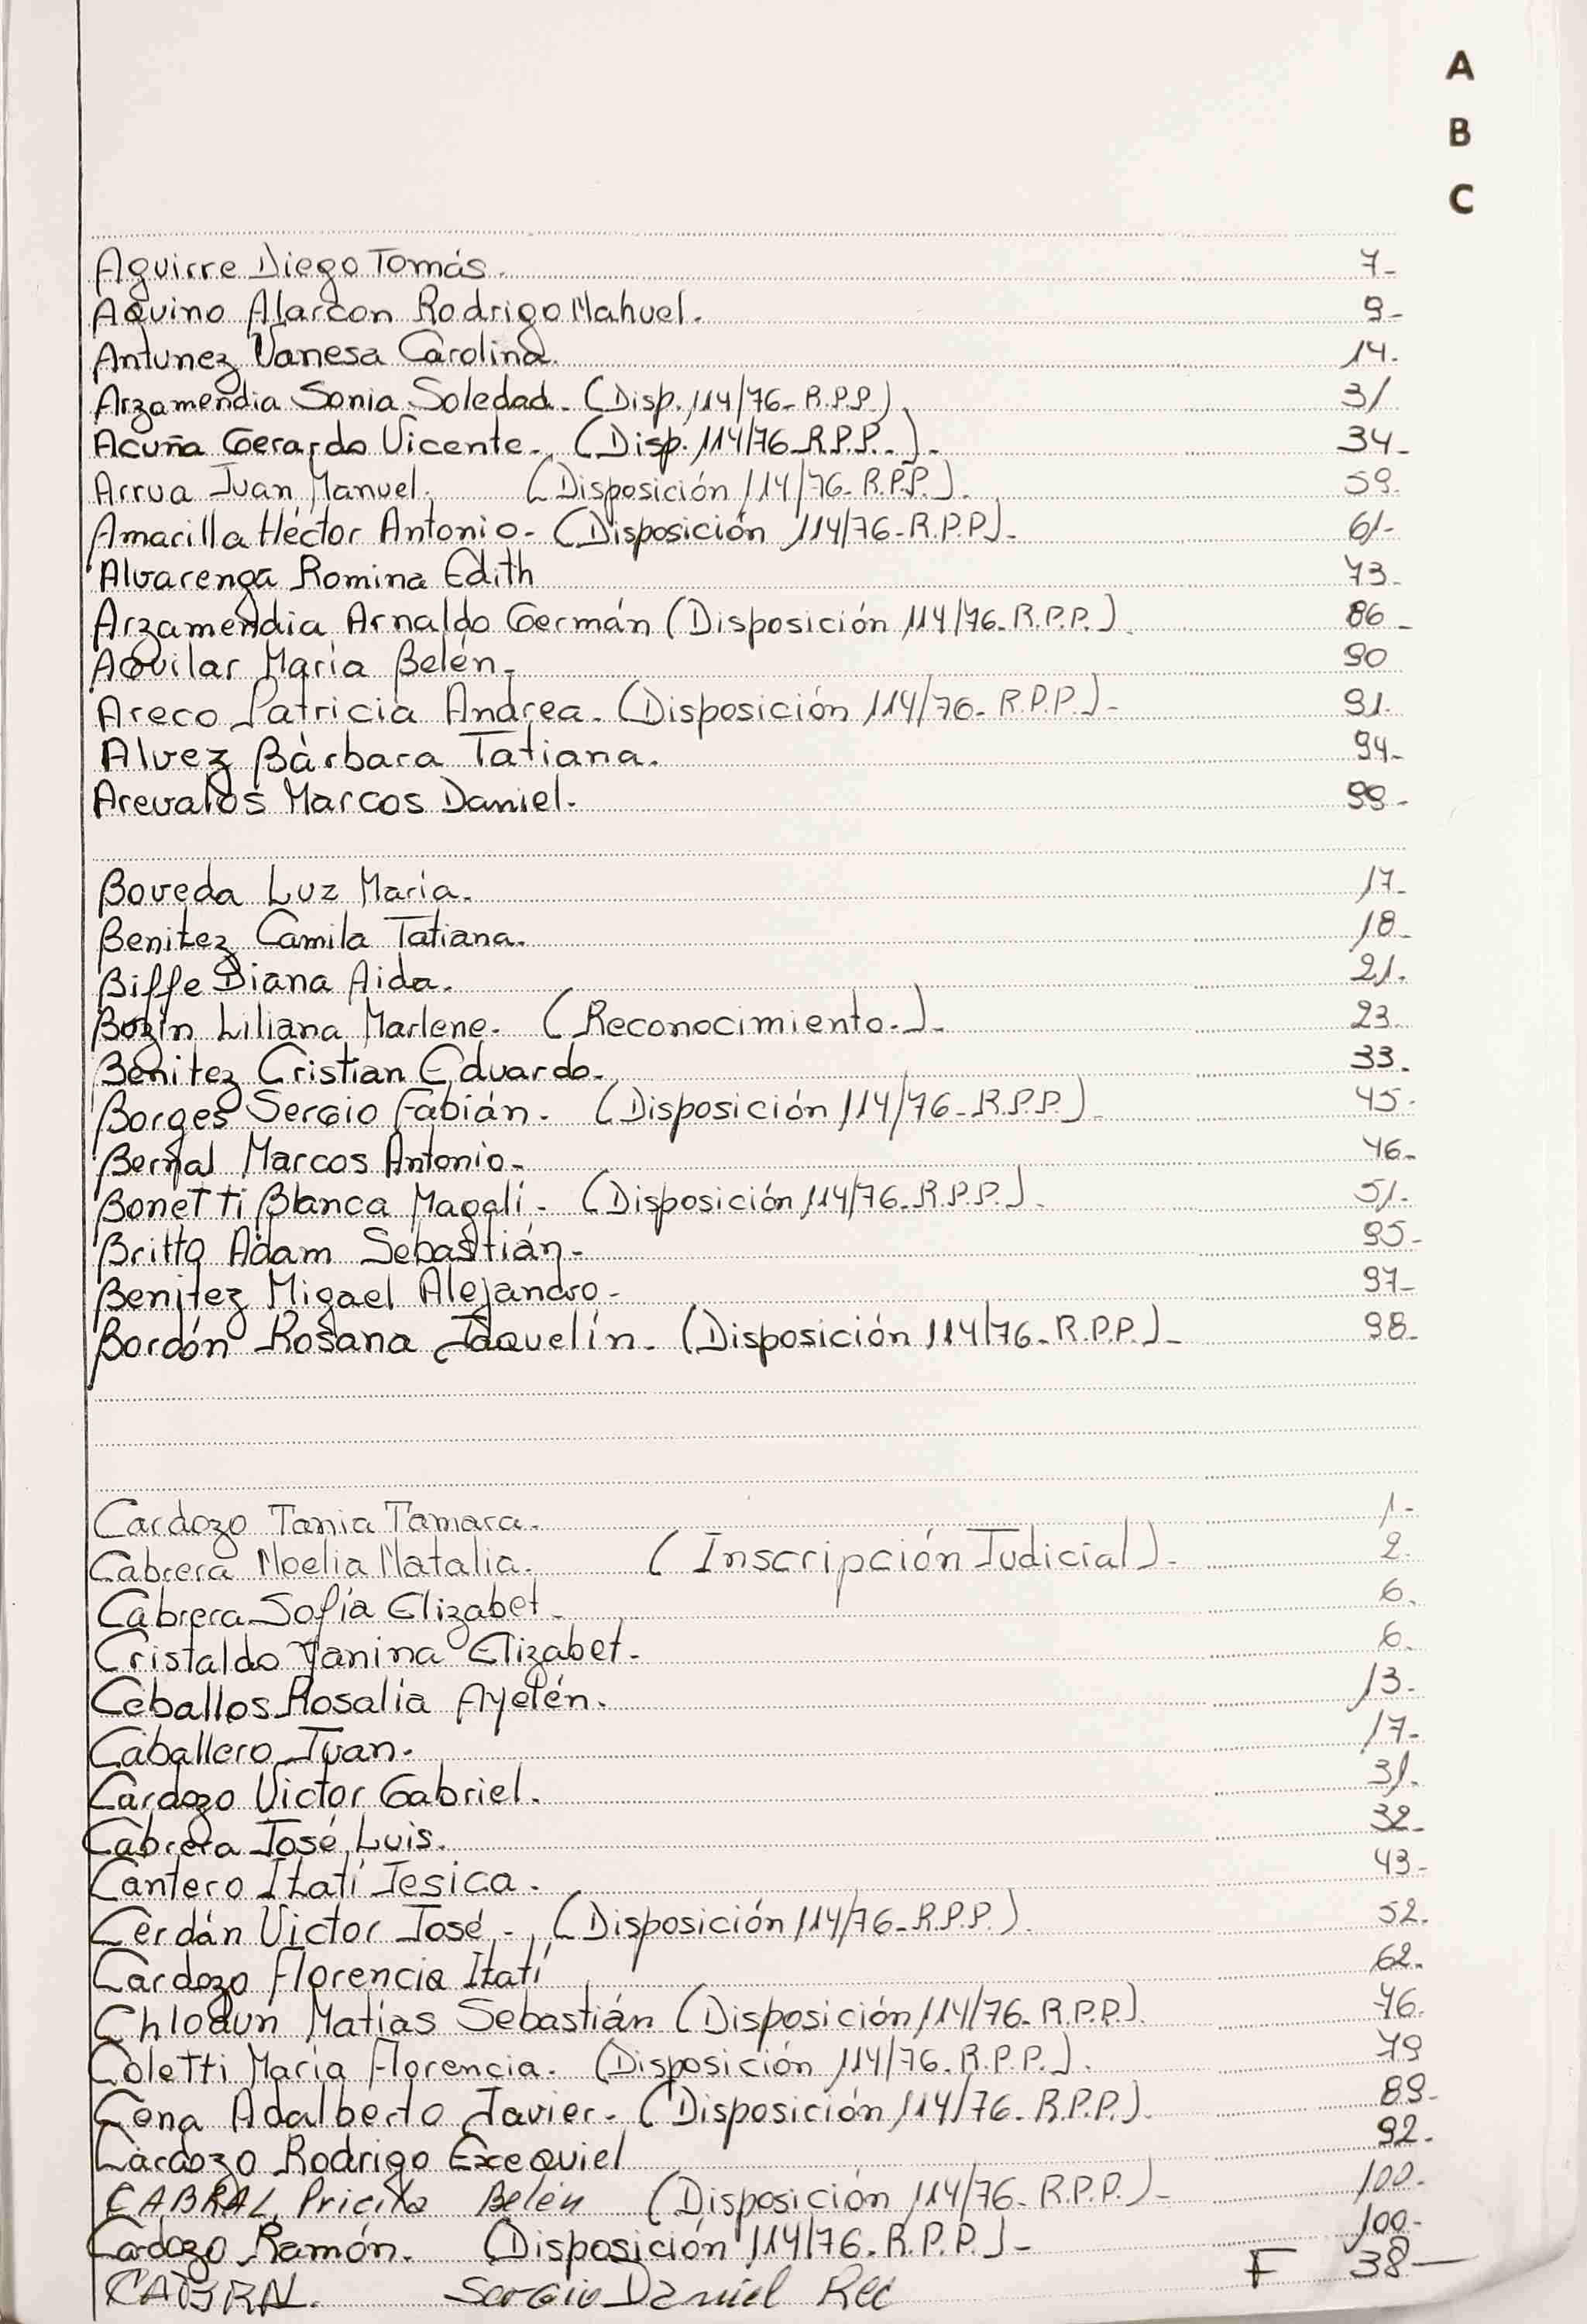 A
B
C
Aguirre Diego Tomás. 7-
Aquino Alarcon Rodrigo Nahuel. 9-
Antunez Vanesa Carolina. 14.
Arzamendia Sonia Soledad. (Disp. 114/76- R.P.P.) 31
Acuña Gerardo Vicente. (Disp. 114/76 R.P.P.)- 34-
Arrua Juan Manuel. (Disposición 114/76- R.P.P.). 59.
Amarilla Héctor Antonio- (Disposición 114/76-R.P.P.)- 61-
Alvarenga Romina Edith 73-
Arzamendia Arnaldo Germán (Disposición 114/76- R.P.P.). 86-
Aquilar María Belén- 90
Areco Patricia Andrea- (Disposición 114/76- R.P.P.)- 91.
Alvez Bárbara Tatiana. 94-
Arevalos Marcos Daniel- 99-
Boveda Luz María. 17-
Benitez Camila Tatiana. 18-
Biffe Diana Aida. 21.
Bozin Liliana Marlene. (Reconocimiento.)- 23.
Benitez Cristian Eduardo. 33.
Borges Sergio Fabián. (Disposición 114/76- R.P.P.)- 45-
Bernal Marcos Antonio- 46-
Bonetti Blanca Magalí. (Disposición 114/76-R.P.P.)- 51-
Britto Adam Sebastián- 95-
Benitez Migael Alejandro- 97-
Bordón Rosana Jaquelín. (Disposición 114/76- R.P.P.)- 98-
Cardozo Tania Tamara. 1-
Cabrera Noelia Natalia. (Inscripción Judicial)- 2.
Cabrera Sofía Elizabet- 6.
Cristaldo Yanina Elizabet- 6.
Ceballos Rosalía Ayelén. 13-
Caballero Juan. 17-
Cardozo Victor Gabriel. 31-
Cabrera José Luis. 32-
Cantero Itatí Jesica. 43-
Cerdán Victor José - (Disposición 114/76- R.P.P.). 52.
Cardozo Florencia Itatí 62.
Chlodun Matías Sebastián (Disposición 114/76- R.P.P.). 76.
Coletti María Florencia. (Disposición 114/76. R.P.P.). 79
Cena Adalberto Javier- (Disposición 114/76- R.P.P.). 89-
Cardozo Rodrigo Exequiel 92.
CABRAL, Pricila Belén (Disposición 114/76- R.P.P.)- 100-
Cardozo Ramón. (Disposición 114/76. R.P.P.)- 100-
CABRAL. Sergio Daniel Rec F 38—